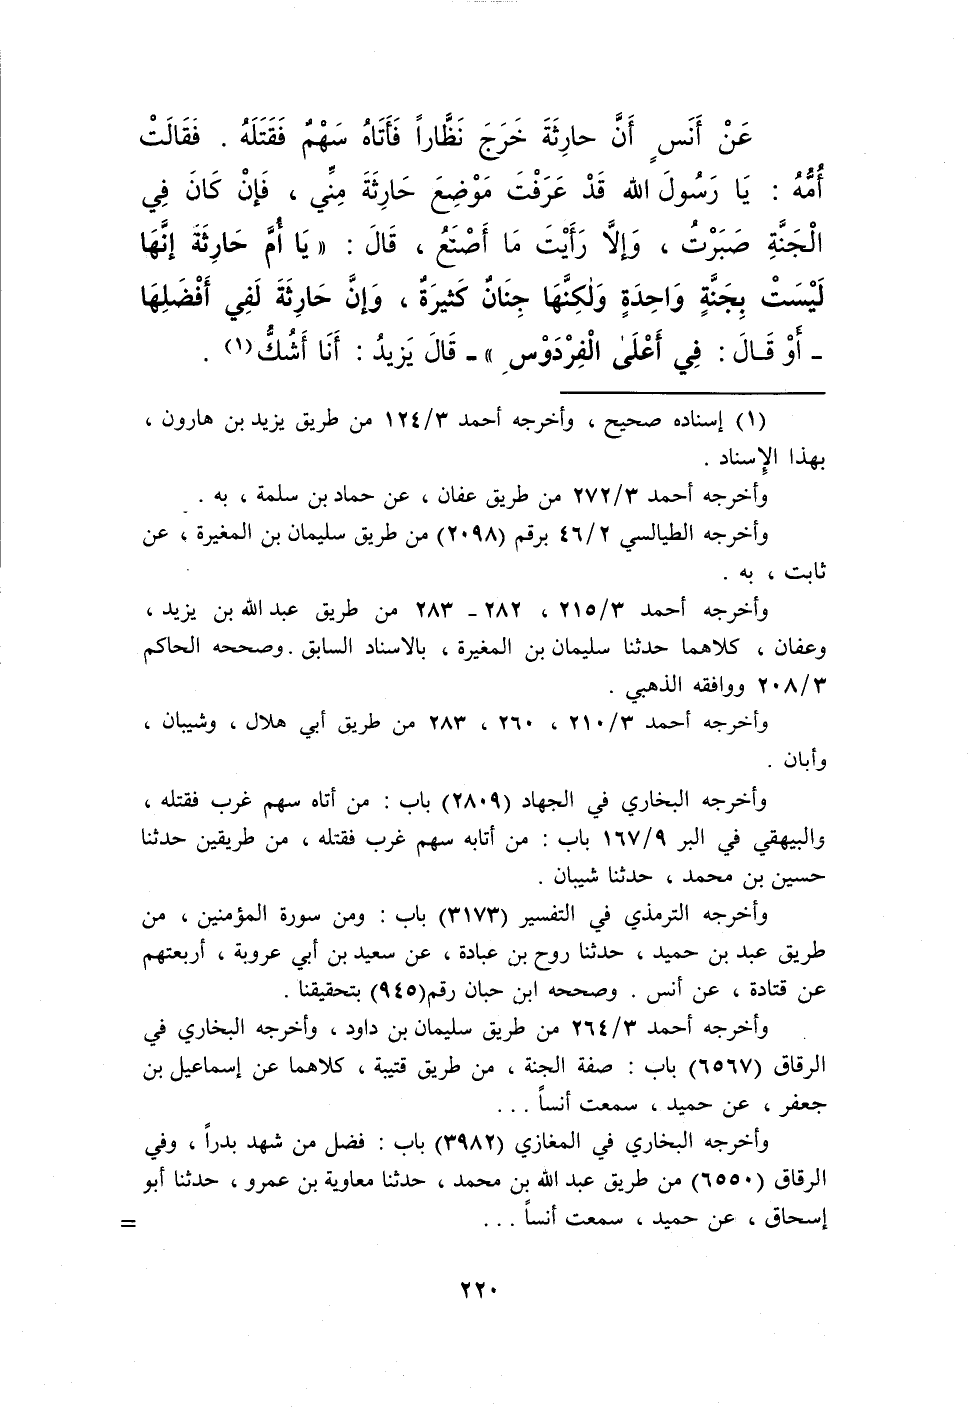 عَنْ أَنَسٍ أَنَّ حارِثَةَ خَرَجَ نَظَّاراً فَأَتَاهُ سَهْمٌ فَقَتَلَهُ . فَقَالَتْ
أُمُّهُ : يَا رَسُولَ الله قَدْ عَرَفْتَ مَوْضِعَ حَارِثَةَ مِنِّي ، فَإِنْ كَانَ فِي
الْجَنَّةِ صَبَرْتُ ، وَإلَّا رَأَيْتَ مَا أَصْنَعُ ، قَالَ : « يَا أُمَّ حَارِثَةَ إنَّهَا
لَيْسَتْ بِجَنَّةٍ وَاحِدَةٍ وَلٰكِنَّهَا جِنَانٌ كَثيرَةٌ ، وَإنَّ حَارِثَةَ لَفِي أَفْضَلِهَا
- أَوْ قَالَ : فِي أَعْلَىٰ الْفِرْدَوْسِ » - قَالَ يَزِيدُ : أَنَا أَشُكُّ(١) .
(١) إسناده صحيح ، وأخرجه أحمد ١٢٤/٣ من طريق يزيد بن هارون ،
بهذا الإِسناد .
وأخرجه أحمد ٢٧٢/٣ من طريق عفان ، عن حماد بن سلمة ، به .
وأخرجه الطيالسي ٤٦/٢ برقم (٢٠٩٨) من طريق سليمان بن المغيرة ، عن
ثابت ، به .
وأخرجه أحمد ٢١٥/٣ ، ٢٨٢ - ٢٨٣ من طريق عبد الله بن يزيد ،
وعفان ، كلاهما حدثنا سليمان بن المغيرة ، بالاسناد السابق . وصححه الحاكم
٢٠٨/٣ ووافقه الذهبي .
وأخرجه أحمد ٢١٠/٣ ، ٢٦٠ ، ٢٨٣ من طريق أبي هلال ، وشيبان ،
وأبان .
وأخرجه البخاري في الجهاد (٢٨٠٩) باب : من أتاه سهم غرب فقتله ،
والبيهقي في البر ١٦٧/٩ باب : من أتابه سهم غرب فقتله ، من طريقين حدثنا
حسين بن محمد ، حدثنا شيبان .
وأخرجه الترمذي في التفسير (٣١٧٣) باب : ومن سورة المؤمنين ، من
طريق عبد بن حميد ، حدثنا روح بن عبادة ، عن سعيد بن أبي عروبة ، أربعتهم
عن قتادة ، عن أنس . وصححه ابن حبان رقم(٩٤٥) بتحقيقنا .
وأخرجه أحمد ٢٦٤/٣ من طريق سليمان بن داود ، وأخرجه البخاري في
الرقاق (٦٥٦٧) باب : صفة الجنة ، من طريق قتيبة ، كلاهما عن إسماعيل بن
جعفر ، عن حميد ، سمعت أنساً . . .
وأخرجه البخاري في المغازي (٣٩٨٢) باب : فضل من شهد بدراً ، وفي
الرقاق (٦٥٥٠) من طريق عبد الله بن محمد ، حدثنا معاوية بن عمرو ، حدثنا أبو
إسحاق ، عن حميد ، سمعت أنساً . . . =
٢٢٠